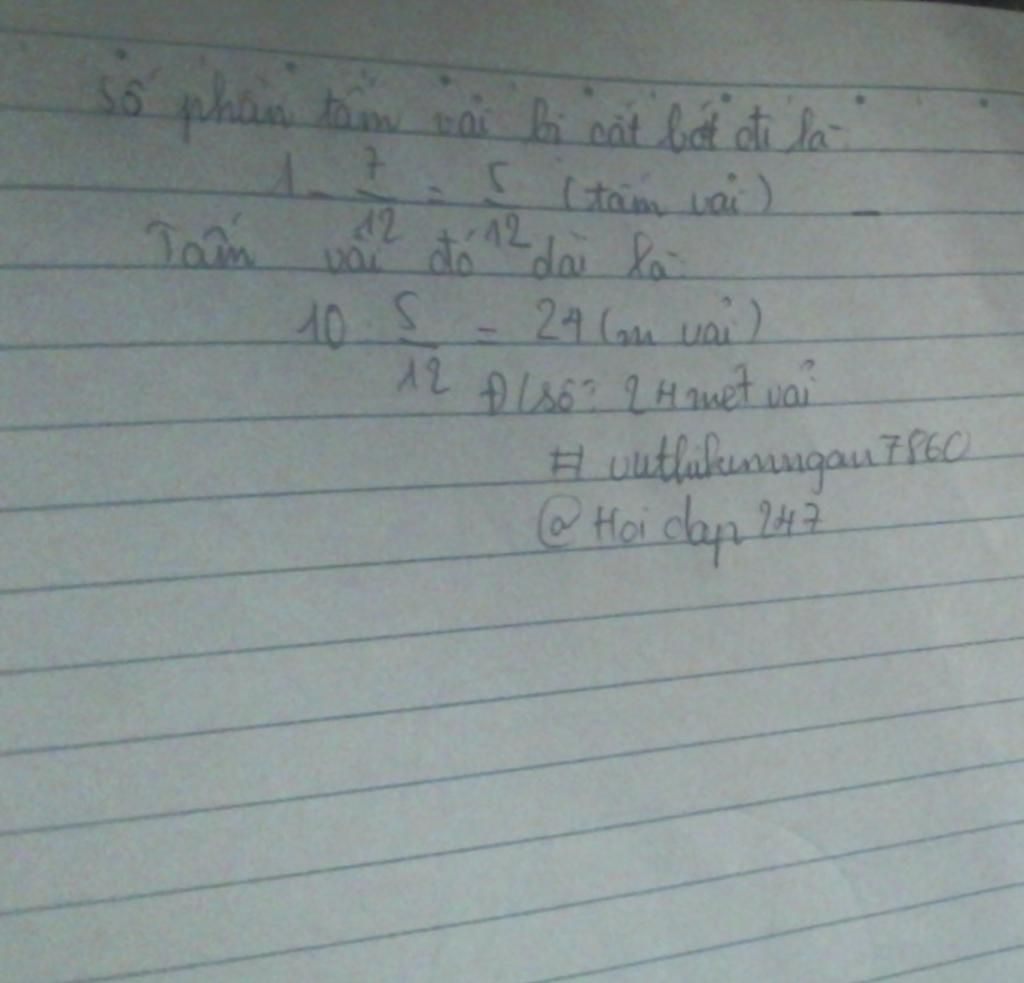 số phần tấm vải bị cắt bớt đi là:
1 - 7/12 = 5/12 (tấm vải)
Tấm vải đó dài là:
10 : 5/12 = 24 (m vải)
Đ/số: 24 mét vải
@ Hoi dap 247